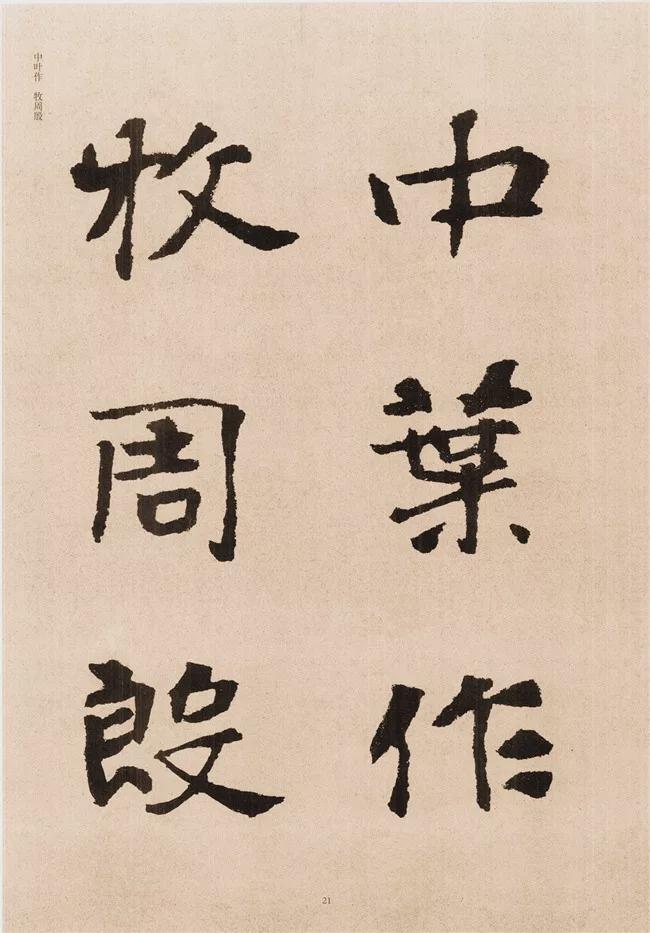 中葉作
牧周殷
中叶作 牧周殷
21